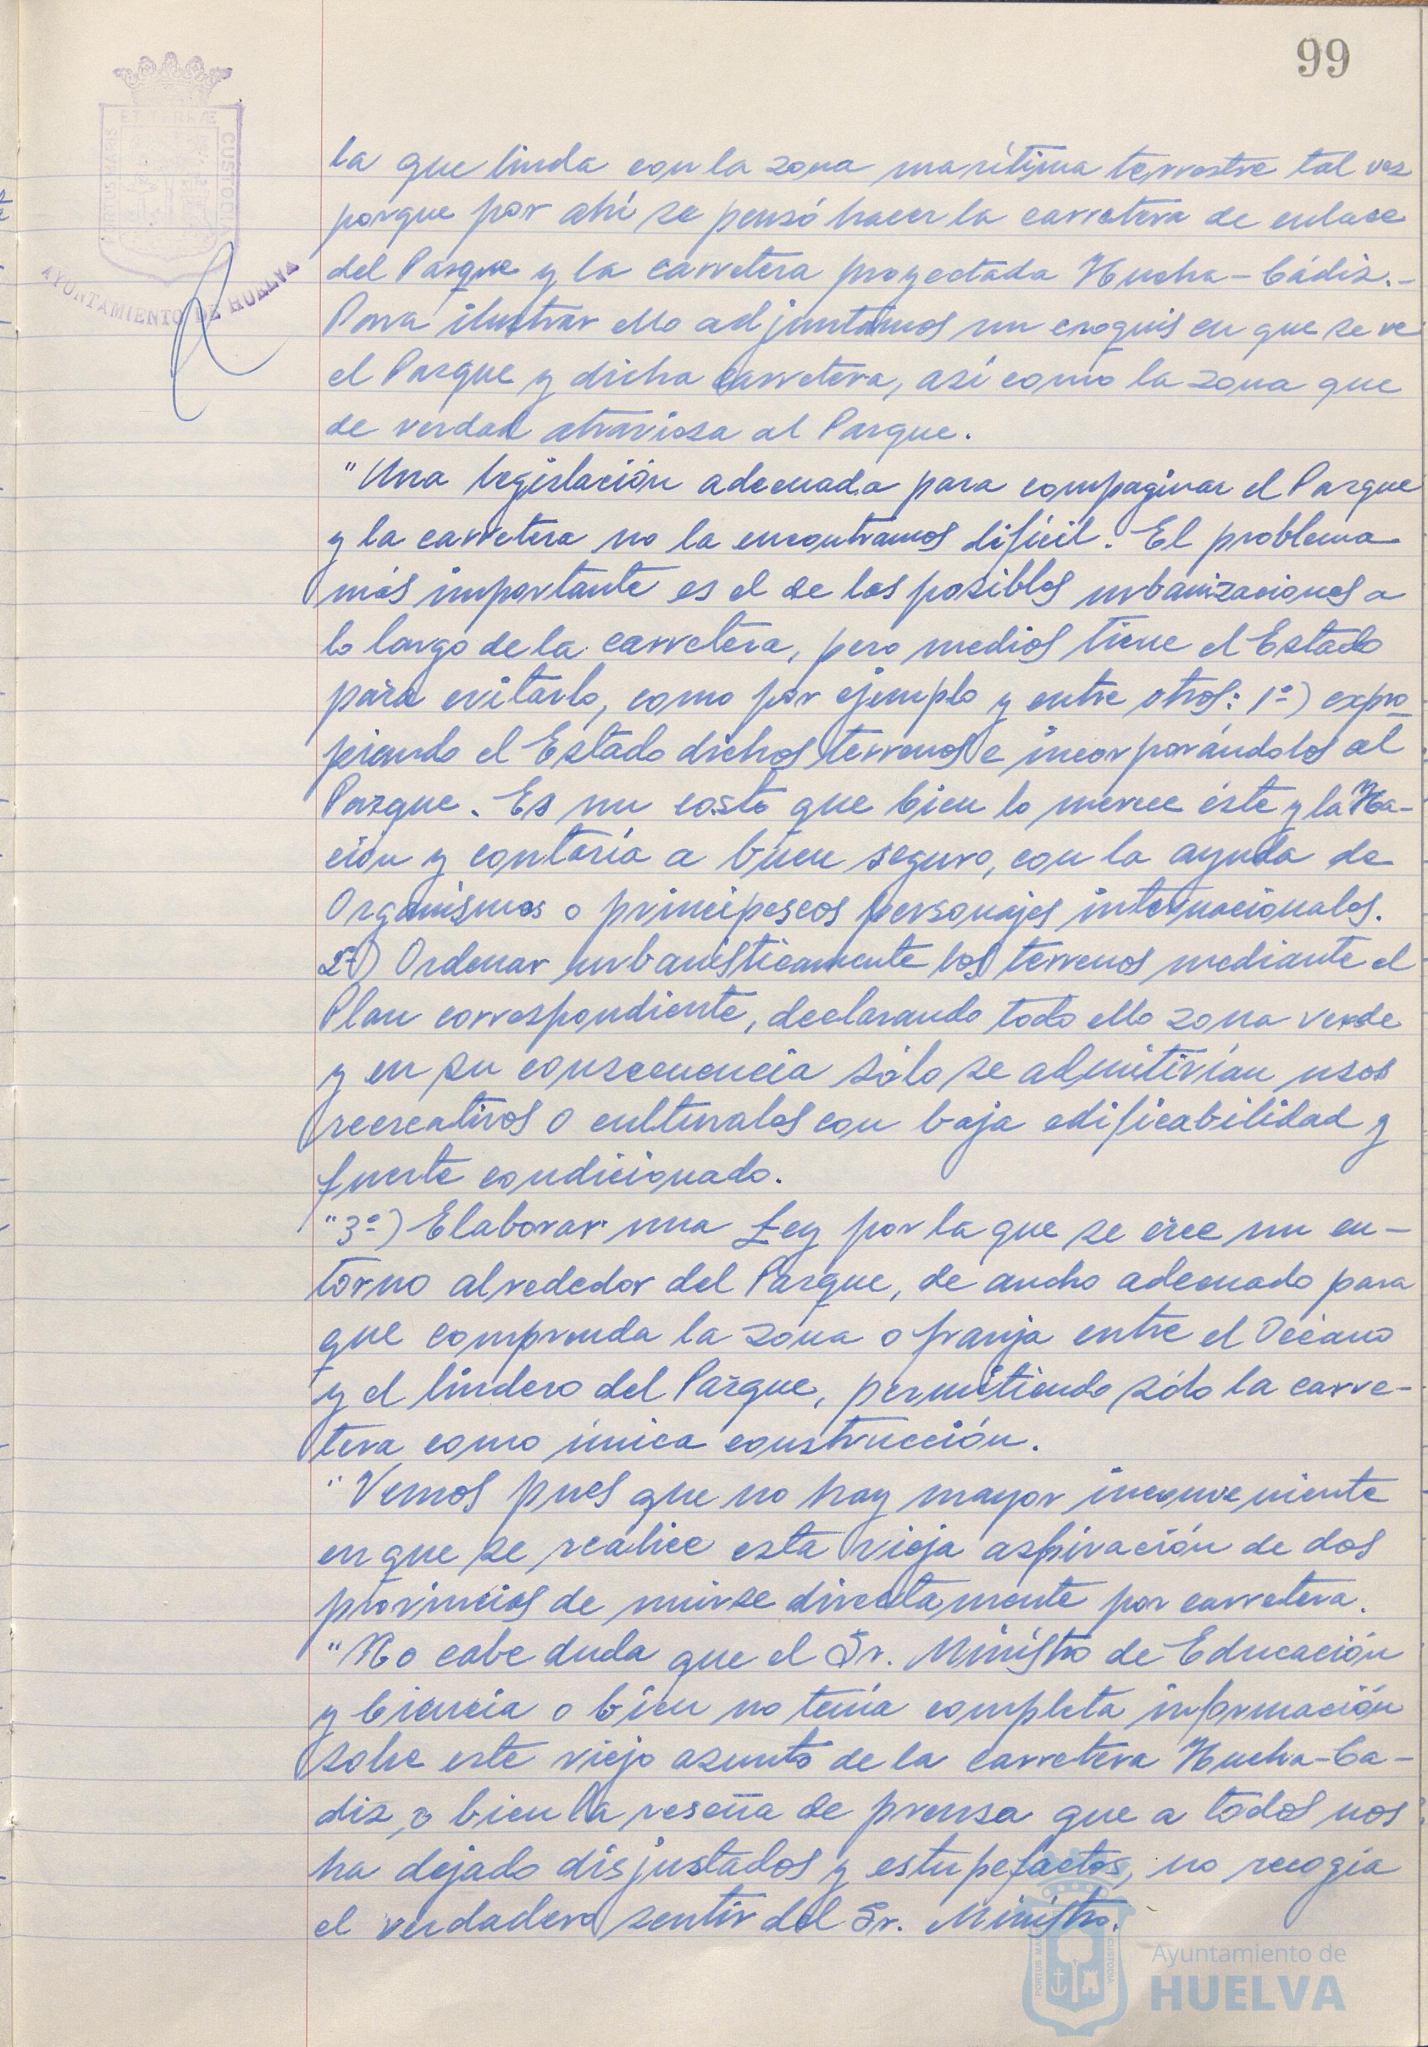 99
ET TERRÆ
CUSTODIA
AYUNTAMIENTO DE HUELVA
la que linda con la zona marítima terrestre tal vez
porque por ahí se pensó hacer la carretera de enlace
del Parque y la carretera proyectada Huelva-Cádiz.-
Para ilustrar ello adjuntamos un croquis en que se ve
el Parque y dicha carretera, así como la zona que
de verdad atraviesa al Parque.
"Una legislación adecuada para compaginar el Parque
y la carretera no la encontramos difícil. El problema
más importante es el de las posibles urbanizaciones a
lo largo de la carretera, pero medios tiene el Estado
para evitarlo, como por ejemplo y entre otros: 1º) expro-
piando el Estado dichos terrenos e incorporándolos al
Parque. Es un costo que bien lo merece éste y la Na-
ción y contaría a buen seguro, con la ayuda de
Organismos o principescos personajes internacionales.
2º) Ordenar urbanísticamente los terrenos mediante el
Plan correspondiente, declarando todo ello zona verde
y en su consecuencia sólo se admitirían usos
recreativos o culturales con baja edificabilidad y
fuerte condicionado.
"3º) Elaborar una Ley por la que se cree un en-
torno alrededor del Parque, de ancho adecuado para
que comprenda la zona o franja entre el Océano
y el lindero del Parque, permitiendo sólo la carre-
tera como única construcción.
"Vemos pues que no hay mayor inconveniente
en que se realice esta vieja aspiración de dos
provincias de unirse directamente por carretera.
"No cabe duda que el Sr. Ministro de Educación
y Ciencia o bien no tenía completa información
sobre este viejo asunto de la carretera Huelva-Cá-
diz, o bien la reseña de prensa que a todos nos
ha dejado disjustados y estupefactos, no recogía
el verdadero sentir del Sr. Ministro.
PORTUS MARIS
CUSTODIA
Ayuntamiento de
HUELVA